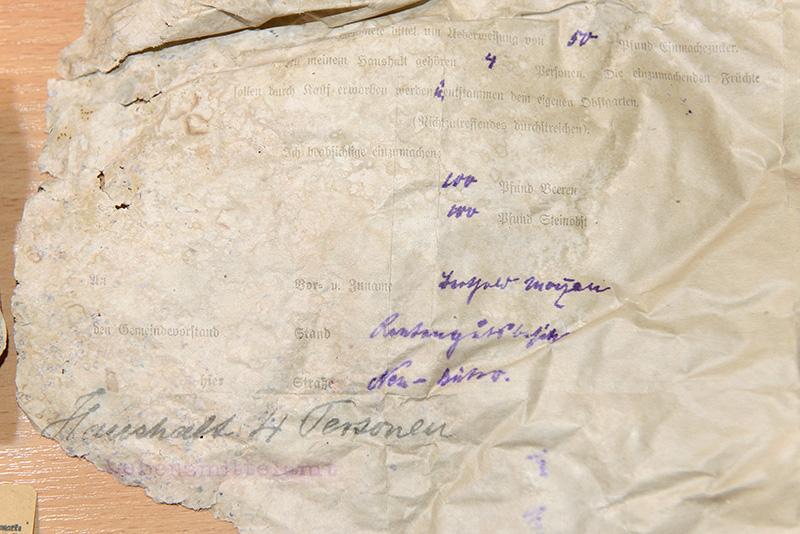 bittet um Ueberweisung von 50 Pfund Einmachezucker.
Zu meinem Haushalt gehören 4 Personen. Die einzumachenden Früchte
sollen durch Kauf erworben werden, entstammen dem eigenen Obstgarten.
(Nichtzutreffendes durchstreichen).
Ich beabsichtige einzumachen:
100 Pfund Beeren
100 Pfund Steinobst
An Vor- u. Zuname Berthold
den Gemeindevorstand Stand Rentengutsbesitzer
hier Straße Neu-
Haushalt 4 Personen
Lebensmittelamt